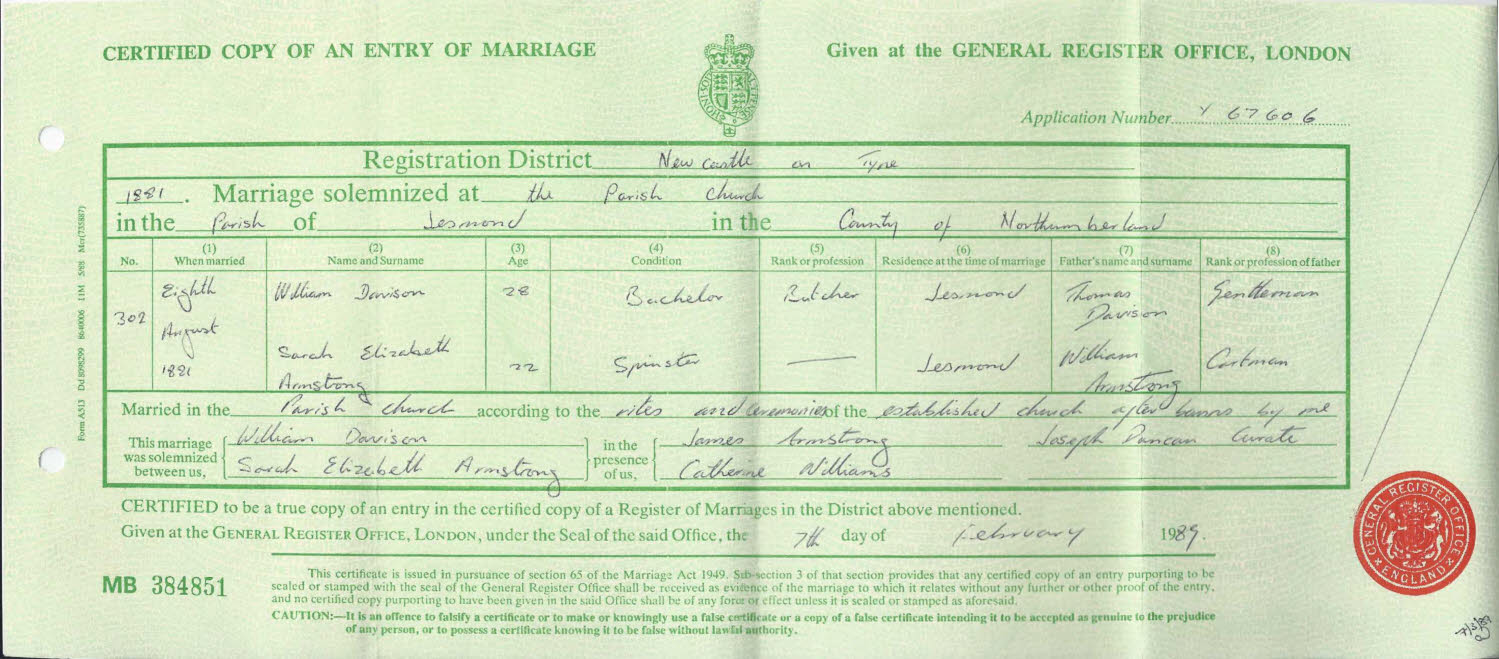 CERTIFIED COPY OF AN ENTRY OF MARRIAGE
Given at the GENERAL REGISTER OFFICE, LONDON
Application Number Y 67606
Registration District Newcastle on Tyne
1881. Marriage solemnized at the Parish church
in the Parish of Jesmond in the County of Northumberland
No. (1) When married (2) Name and Surname (3) Age (4) Condition (5) Rank or profession (6) Residence at the time of marriage (7) Father's name and surname (8) Rank or profession of father
302 Eighth August 1881
William Davison 28 Bachelor Butcher Jesmond Thomas Davison Gentleman
Sarah Elizabeth Armstrong 22 Spinster — Jesmond William Armstrong Cartman
Married in the Parish church according to the rites and ceremonies of the established church after banns by me
This marriage was solemnized between us,
William Davison
Sarah Elizabeth Armstrong
in the presence of us,
James Armstrong
Catherine Williams
Joseph Duncan Curate
CERTIFIED to be a true copy of an entry in the certified copy of a Register of Marriages in the District above mentioned.
Given at the GENERAL REGISTER OFFICE, LONDON, under the Seal of the said Office, the 7th day of February 1989.
MB 384851
This certificate is issued in pursuance of section 65 of the Marriage Act 1949. Sub-section 3 of that section provides that any certified copy of an entry purporting to be
sealed or stamped with the seal of the General Register Office shall be received as evidence of the marriage to which it relates without any further or other proof of the entry,
and no certified copy purporting to have been given in the said Office shall be of any force or effect unless it is sealed or stamped as aforesaid.
CAUTION:—It is an offence to falsify a certificate or to make or knowingly use a false certificate or a copy of a false certificate intending it to be accepted as genuine to the prejudice
of any person, or to possess a certificate knowing it to be false without lawful authority.
GENERAL REGISTER OFFICE
ENGLAND
Form A513 Dd 8098299 8640006 11M 5/88 Mcr(735887)